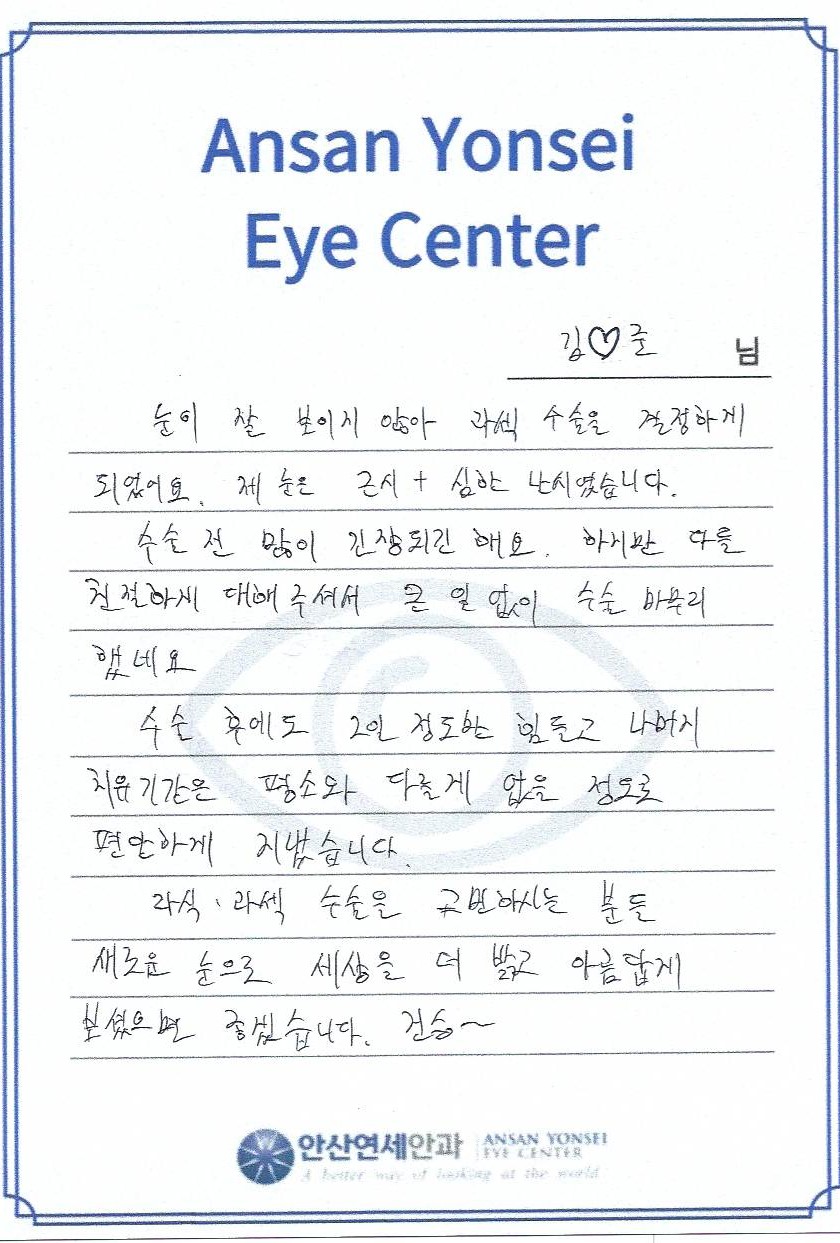 Ansan Yonsei
Eye Center
김♡준 님
눈이 잘 보이지 않아 라섹 수술을 결정하게
되었어요. 제 눈은 근시 + 심한 난시였습니다.
수술 전 많이 긴장되긴 해요. 하지만 다들
친절하게 대해주셔서 큰 일 없이 수술 마무리
했네요
수술 후에도 2일 정도만 힘들고 나머지
치유기간은 평소와 다를게 없을 정도로
편안하게 지냈습니다.
라식, 라섹 수술을 고민하시는 분들
새로운 눈으로 세상을 더 밝고 아름답게
보셨으면 좋겠습니다. 건승~
안산연세안과 ANSAN YONSEI
EYE CENTER
A better way of looking at the world